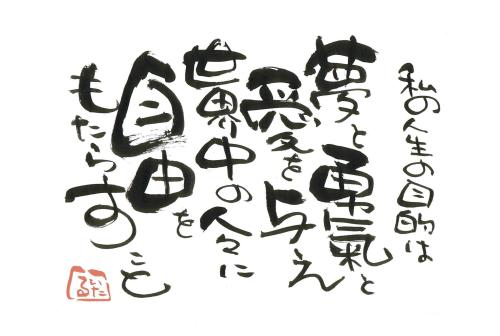 私の人生の目的は
夢と勇氣と
愛を与え
世界中の人々に
自由を
もたらすこと